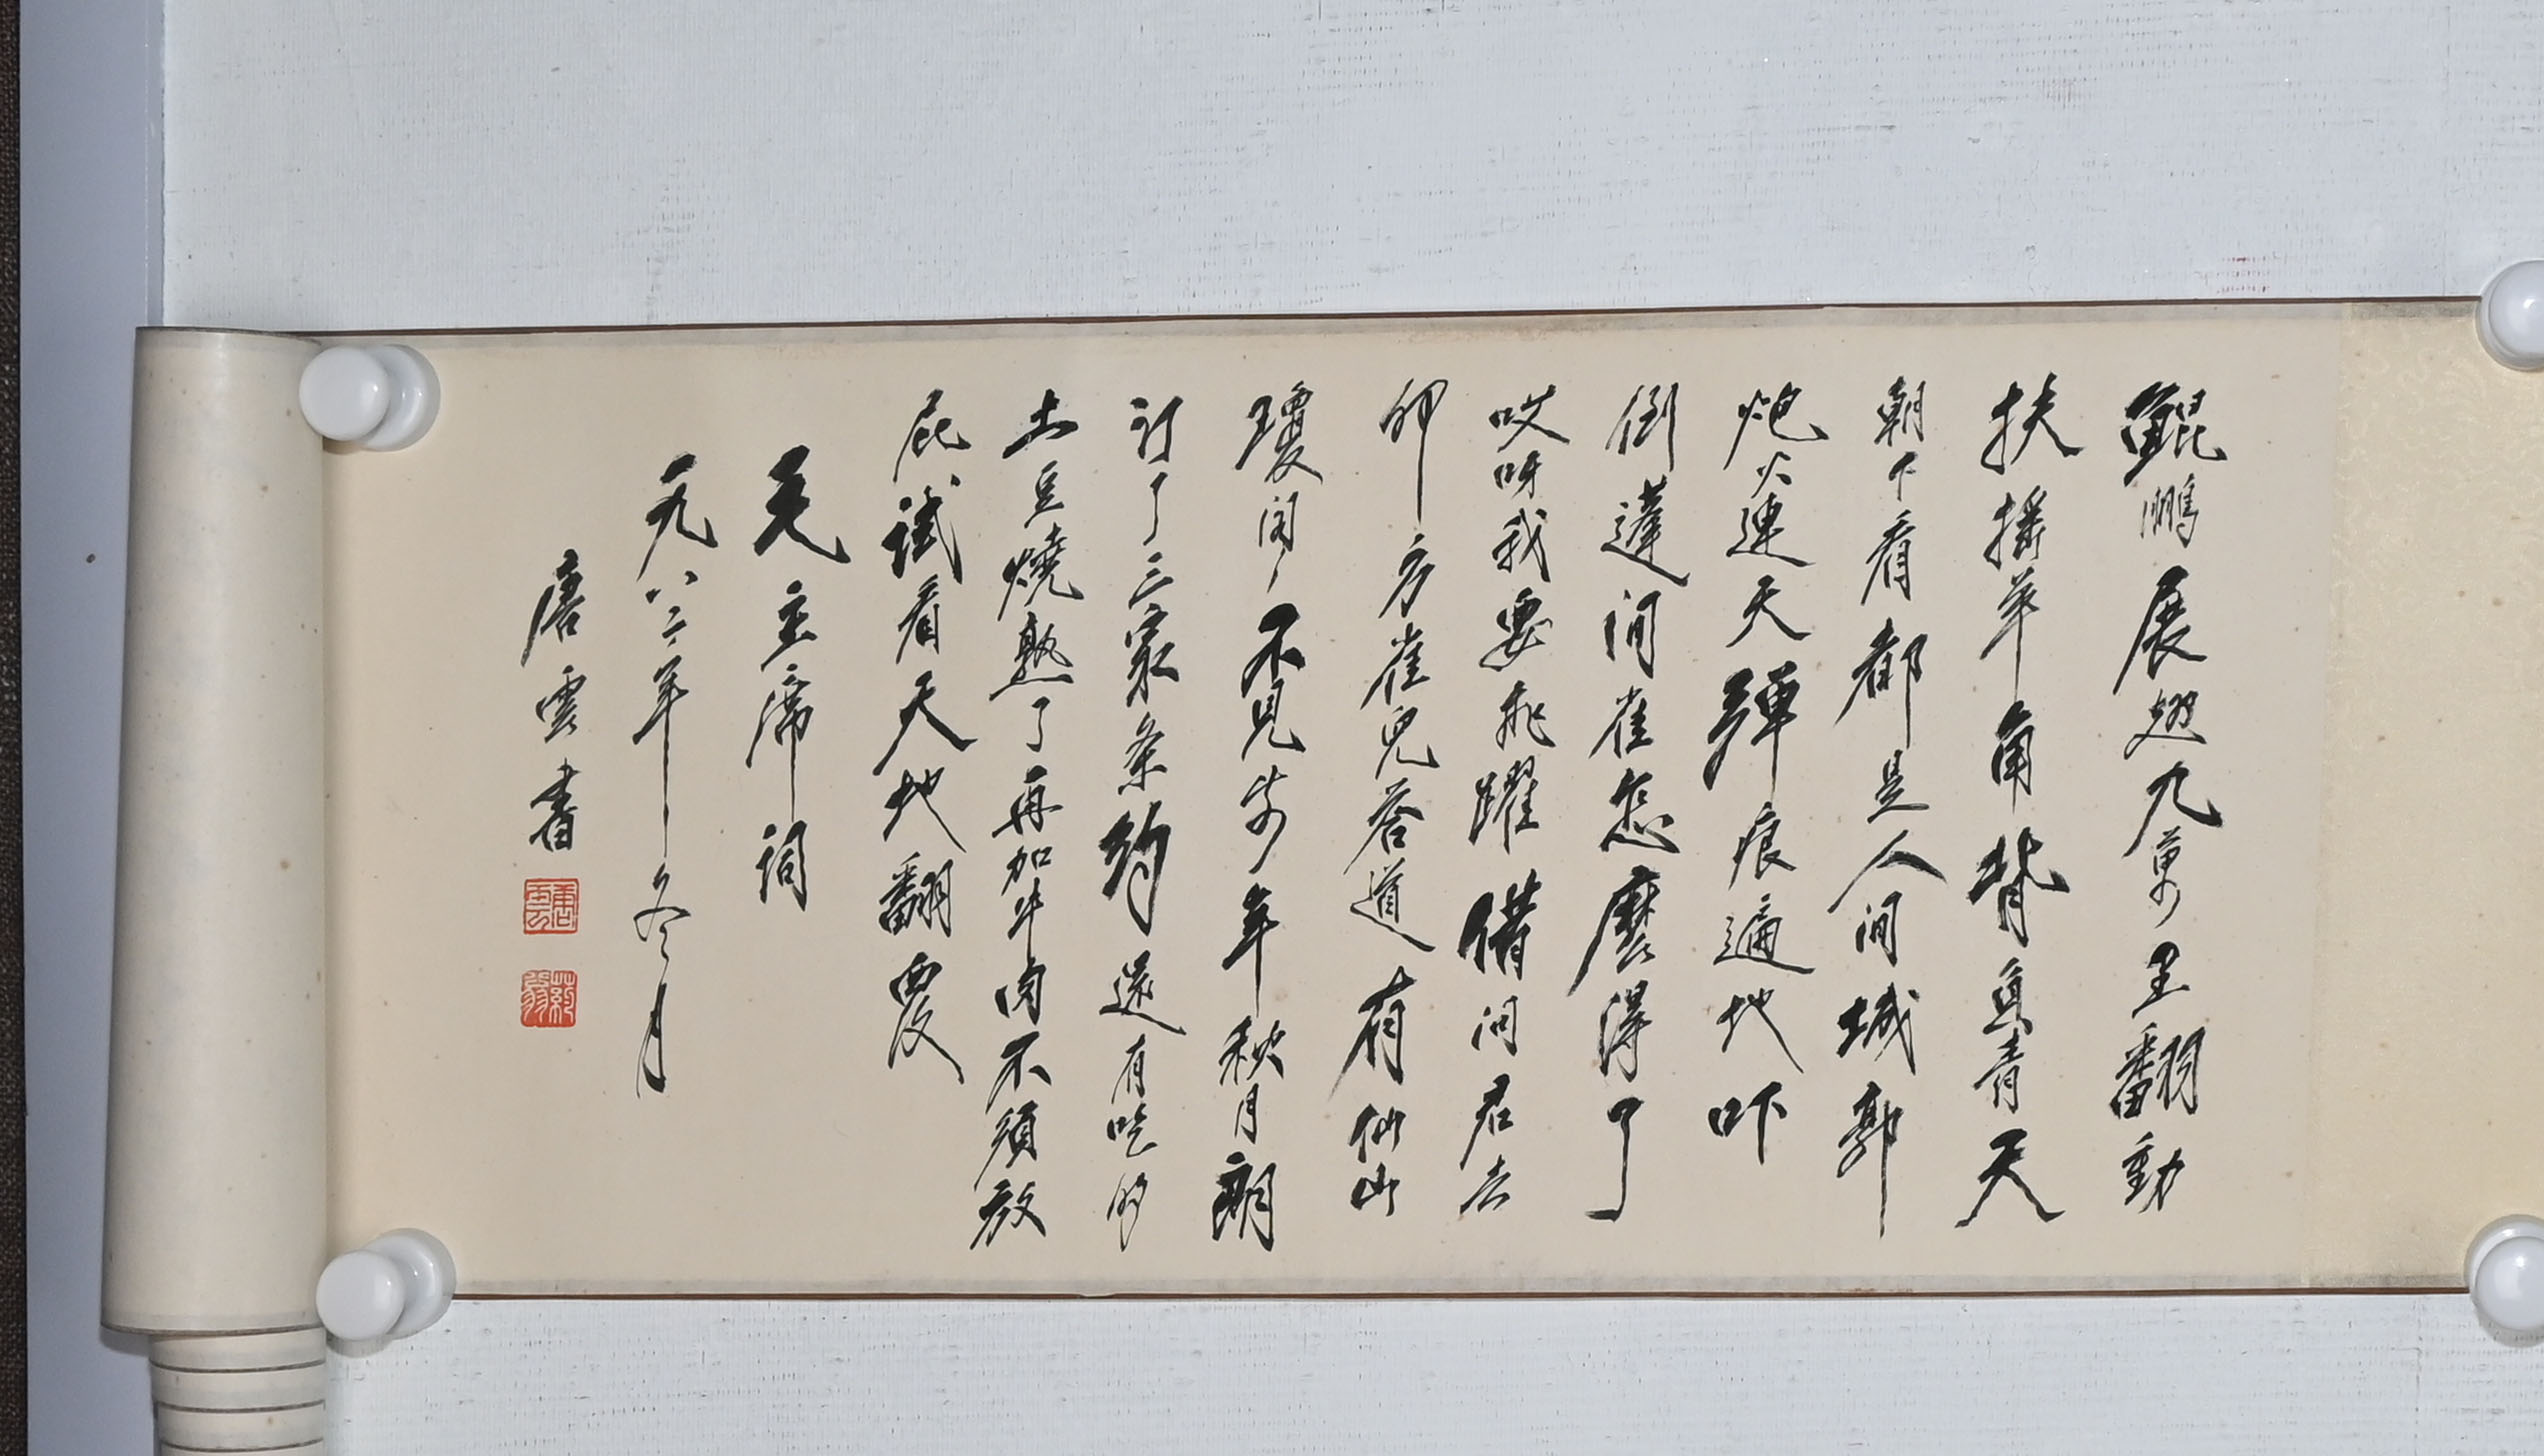 鯤鵬展翅九萬里翻動
扶搖羊角背負青天
朝下看都是人间城郭
炮火連天彈痕遍地吓
倒蓬间雀怎麽得了
哎呀我要飛躍借问君去
何方雀兒答道有仙山
瓊阁不見前年秋月朗
訂了三家条約還有吃的
土豆燒熟了再加牛肉不須放
屁試看天地翻覆
毛主席詞
一九八二年冬月
唐雲書
唐云
药翁